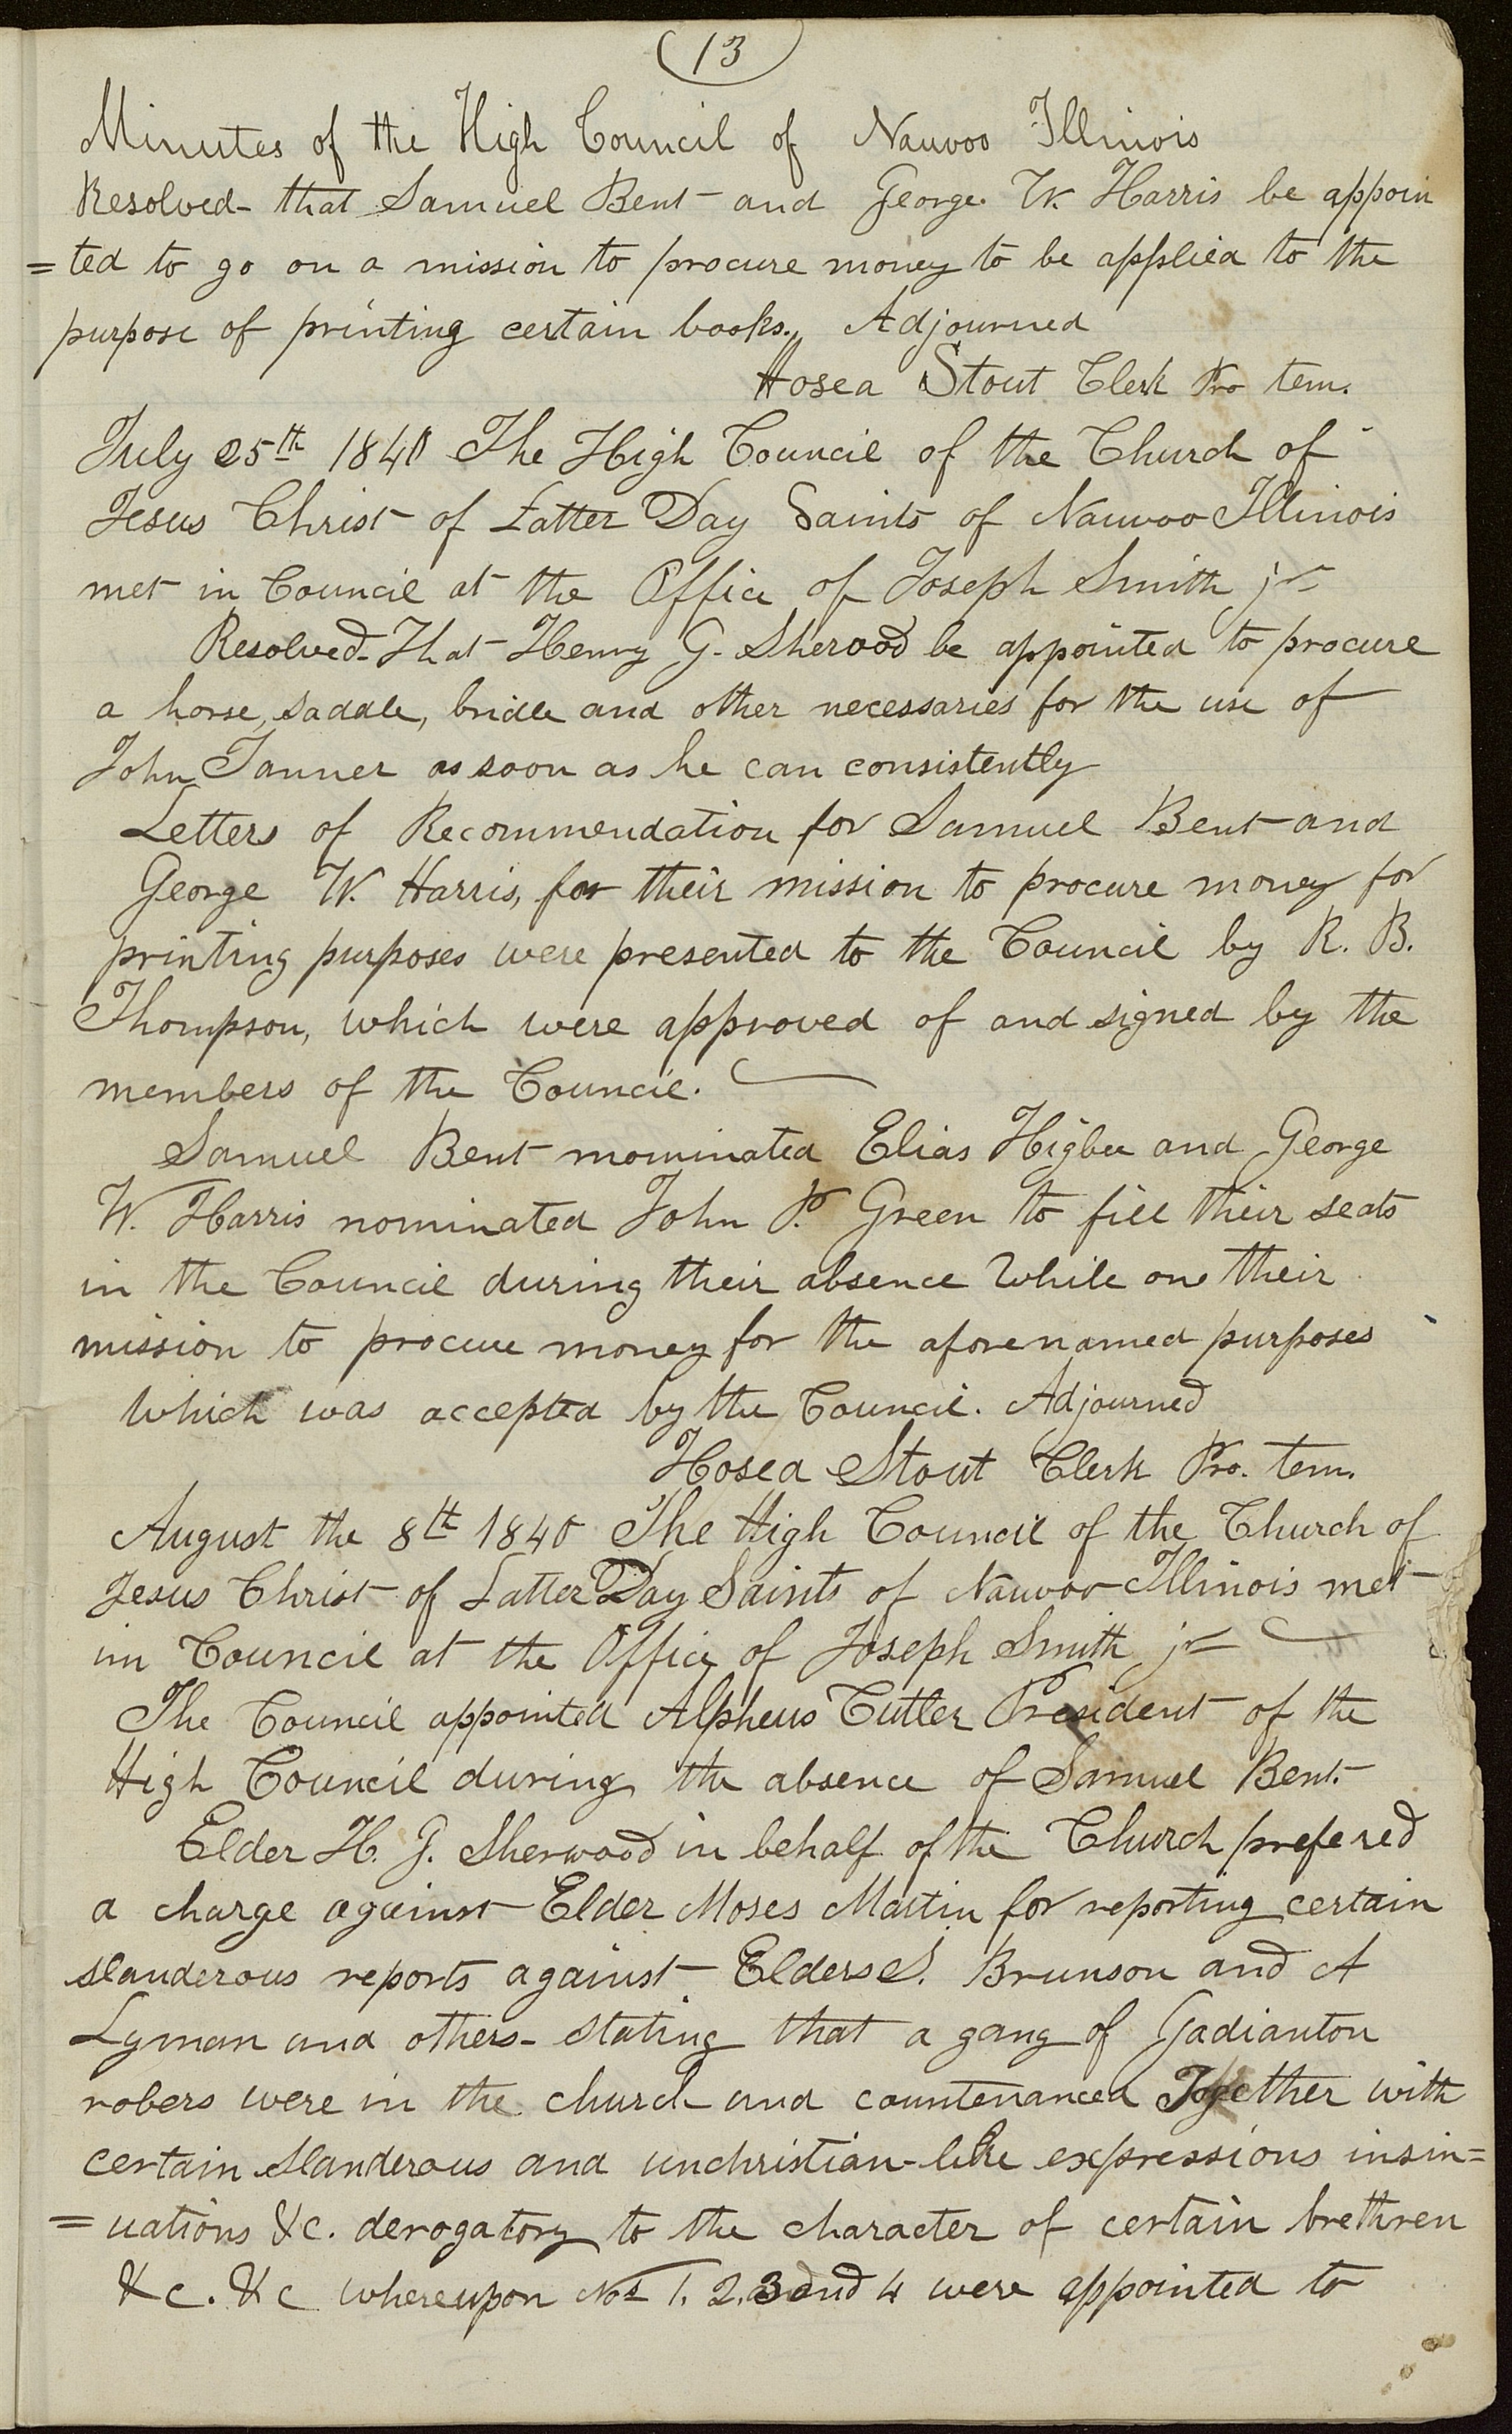 13
Minutes of the High Council of Nauvoo Illinois
Resolved- that Samuel Bent and George W. Harris be appoin
=ted to go on a mission to procure money to be applied to the
purpose of printing certain books., Adjourned
Hosea Stout Clerk Pro tem.
July 25th 1840 The High Council of the Church of
Jesus Christ of Latter Day Saints of Nauvoo Illinois
met in Council at the Office of Joseph Smith jr
Resolved- That Henry G. Sherood be appointed to procure
a horse, saddle, bridle and other necessaries for the use of
John Tanner as soon as he can consistently
Letters of Recommendation for Samuel Bent and
George W. Harris, for their mission to procure money for
printing purposes were presented to the Council by R. B.
Thompson, which were approved of and signed by the
members of the Council.
Samuel Bent nominated Elias Higbee and George
W. Harris nominated John P. Green to fill their seats
in the Council during their absence while on their
mission to procure money for the aforenamed purposes
which was accepted by the Council. Adjourned
Hosea Stout Clerk Pro. tem.
August the 8th 1840 The High Council of the Church of
Jesus Christ of Latter Day Saints of Nauvoo Illinois met
in Council at the Office of Joseph Smith jr
The Council appointed Alpheus Cutler President of the
High Council during the absence of Samuel Bent.
Elder H. G. Sherwood in behalf of the Church prefered
a charge against Elder Moses Martin for reporting certain
slanderous reports against Elders S. Brunson and A
Lyman and others- stating that a gang of Gadianton
robers were in the church and countenanced Together with
certain slanderous and unchristian-like expressions insin=
=uations &c. derogatory to the character of certain brethren
&c. &c whereupon Nos 1. 2. 3 and 4 were appointed to